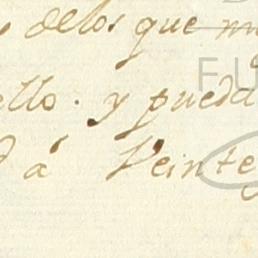 delos que
ello. y pueda
á Veinte